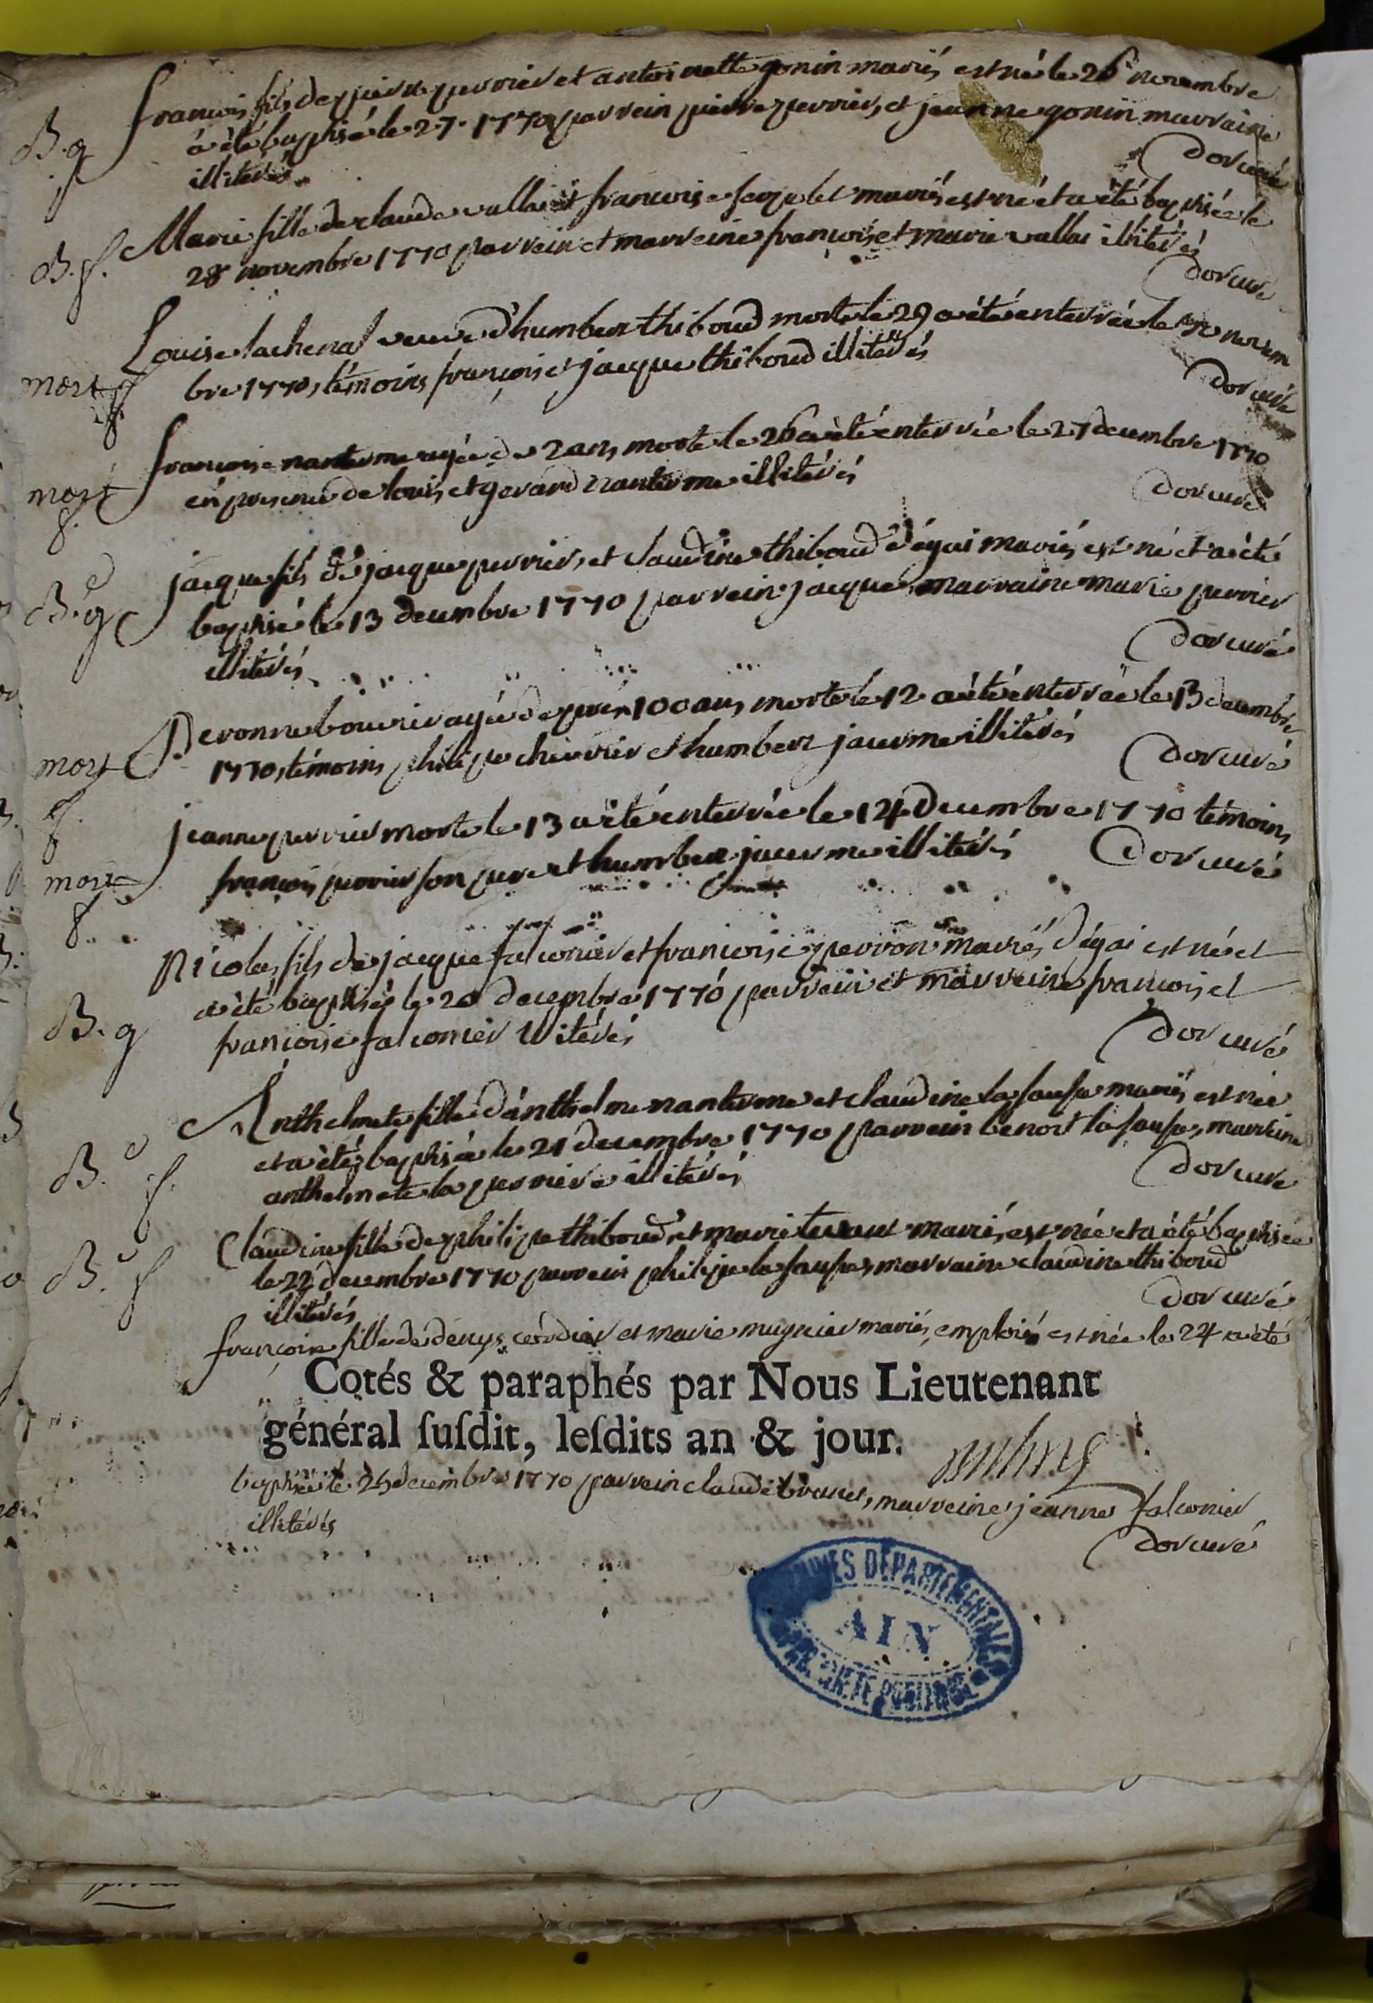 francois fils de pierre perrier et antoinette gonin mariés est né le 26 novembre
B. g
a été baptisé le 27. 1770 parrein pierre perrier, et jeanne gonin marraine
illiterés
Dor curé
Marie fille de claude vallai et francoise mariés est né et a été baptisée le
B. f.
28 novembre 1770 parrein et marreine francois et marie vallai illiterés
Dor curé
Louise lachenal veuve d'humbert thiboud morte le 29 a été enterrée le 30 novem
mort f
bre 1770, témoins françois et jacque thiboud illiterés
Dor curé
francoise nanterme agée de 2 ans morte le 26 a été enterrée le 27 decembre 1770
mort f.
en presence de louis et gerard nanterme illiterés
Dor curé
jacque fils de jacque perrier, et claudine thiboud d'égai mariés est né et a été
B. g
baptisé le 13 decembre 1770 parrein jacque, marraine marie perrier
illiterés
Dor curé
Peronne bouvier agée de près 100 ans morte le 12 a été enterrée le 13 decembre
mort f.
1770, témoins philipe chevrier et humbert jacerme illiterés
Dor curé
jeanne perrier morte le 13 a été enterrée le 14 Decembre 1770 témoins
mort f.
françois perrier son pere et humbert jacerme illiterés
Dor curé
Nicolas fils de jacque falconier et francoise perron mariés d'égai est né et
a été baptisé le 20 decembre 1770 parrein et marreine francois et
B. g
francoise falconier illiterés
Dor curé
Anthelmete fille d'anthelme nanterme et claudine la sause mariés est née
et a été baptisée le 21 decembre 1770 parrein benoit la sause, marreine
B. f.
anthelmete la perriere illiterés
Dor curé
Claudine fille de philipe thiboud et marie mariés est née et a été baptisée
B. f
le 22 decembre 1770 parrein philipe la sause, marraine claudine thiboud
illiterés
Dor curé
françoise fille de denys cordier et marie mugnier mariés, emploiés est née le 24 a été
Cotés & paraphés par Nous Lieutenant
général ſuſdit, leſdits an & jour.
baptisée le 25 decembre 1770 parrein claude, marreine jeanne falconier
illiterés
Dor curé
ARCHIVES DÉPARTEMENTALES
AIN
PROPRIÉTÉ PUBLIQUE